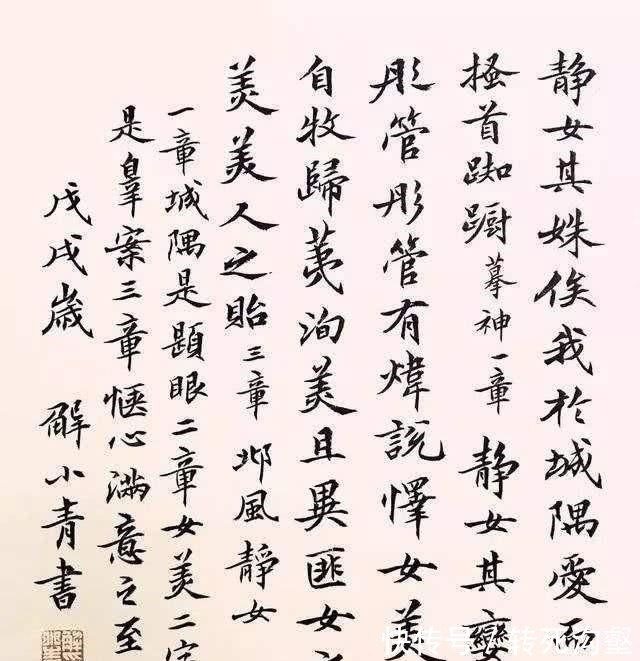 静女其姝俟我於城隅愛而
搔首踟蹰摹神一章静女其孌
彤管彤管有煒說懌女美
自牧歸荑洵美且異匪女之
美美人之貽三章邶風静女
一章城隅是題眼二章女美二字
是辠案三章愜心滿意之至
戊戌歲 解小青書
快传号/转死沟壑